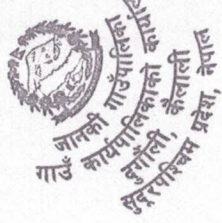 जानकी गाउँपालिका
गाउँ कार्यपालिकाको
दुर्गौली, कैलाली
सुदूरपश्चिम प्रदेश, नेपाल